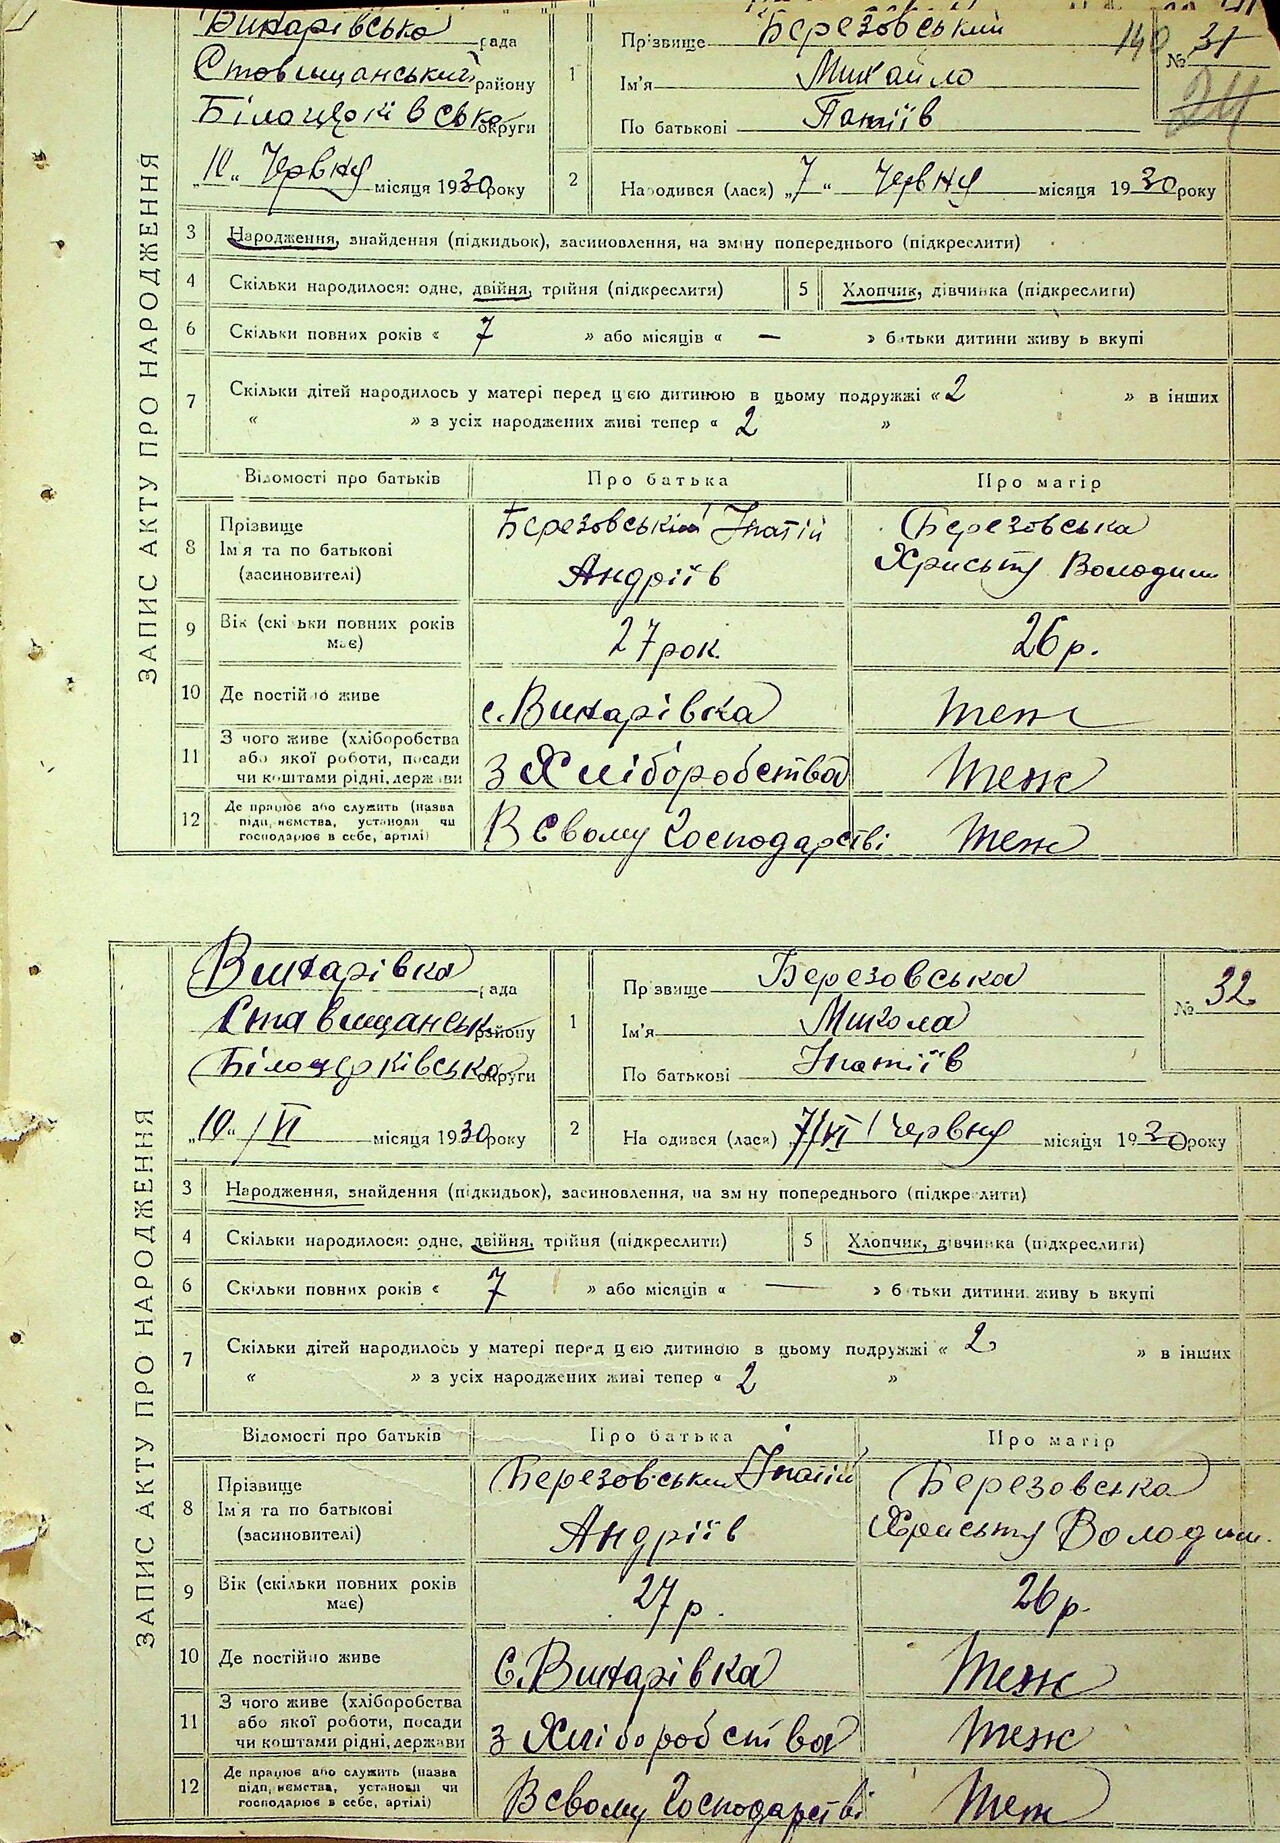 ЗАПИС АКТУ ПРО НАРОДЖЕННЯ
Винарівська рада
Ставищанський району
Білоцерківська округи
„10“ Червня місяця 1930 року
1 Прізвище Березовський
Ім'я Михайло
По батькові Патіїв
140 № 31
24
2 Народився (лася) „7“ Червня місяця 1930 року
3 Народження, знайдення (підкидьок), засиновлення, на зміну попереднього (підкреслити)
4 Скільки народилося: одне, двійня, трійня (підкреслити) 5 Хлопчик, дівчинка (підкреслити)
6 Скільки повних років « 7 » або місяців « — » батьки дитини живуть вкупі
7 Скільки дітей народилось у матері перед цією дитиною в цьому подружжі « 2 » в інших
« » з усіх народжених живі тепер « 2 »
Відомості про батьків Про батька Про матір
8 Прізвище Ім'я та по батькові (засиновителі)
Березовський Іпатій Андріїв
Березовська Христя Володим
9 Вік (скільки повних років має) 27 рок. 26 р.
10 Де постійно живе с. Винарівка теж
11 З чого живе (хліборобства або якої роботи, посади чи коштами рідні, держави
з Хліборобства теж
12 Де працює або служить (назва підприємства, установи чи господарює в себе, артілі)
В свому Господарстві теж
ЗАПИС АКТУ ПРО НАРОДЖЕННЯ
Винарівка рада
Ставищанськ району
Білоцерківська округи
„10“ /VI місяця 1930 року
1 Прізвище Березовська
Ім'я Микола
По батькові Іпатіїв
№ 32
2 Народився (лася) „7/VI/ Червня місяця 1930 року
3 Народження, знайдення (підкидьок), засиновлення, на зміну попереднього (підкреслити)
4 Скільки народилося: одне, двійня, трійня (підкреслити) 5 Хлопчик, дівчинка (підкреслити)
6 Скільки повних років « 7 » або місяців « — » батьки дитини живуть вкупі
7 Скільки дітей народилось у матері перед цією дитиною в цьому подружжі « 2 » в інших
« » з усіх народжених живі тепер « 2 »
Відомості про батьків Про батька Про матір
8 Прізвище Ім'я та по батькові (засиновителі)
Березовський Іпатій Андріїв
Березовська Христя Володим.
9 Вік (скільки повних років має) 27 р. 26 р.
10 Де постійно живе с. Винарівка теж
11 З чого живе (хліборобства або якої роботи, посади чи коштами рідні, держави
з Хліборобства теж
12 Де працює або служить (назва підприємства, установи чи господарює в себе, артілі)
В свому Господарстві теж